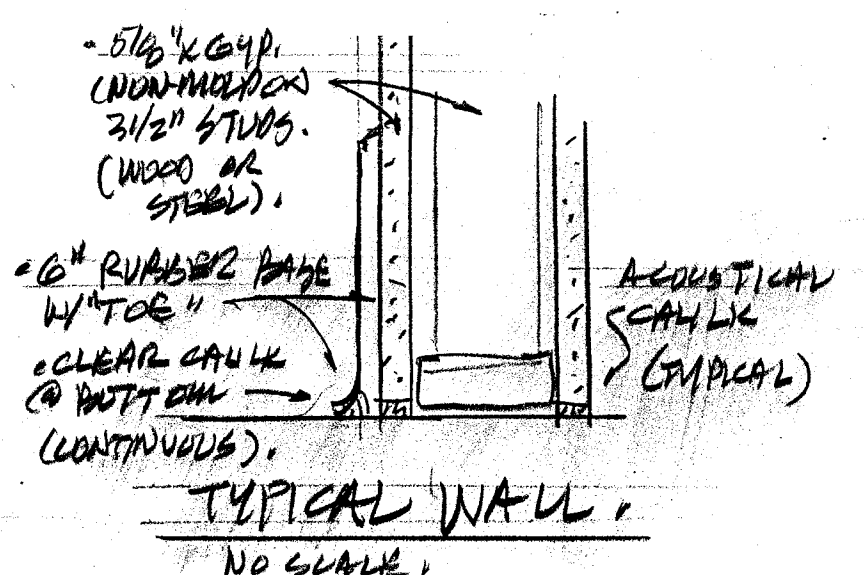 • 5/8" X GYP.
(NON-MOLD ON
3 1/2" STUDS.
(WOOD OR
STEEL).
• 6" RUBBER BASE
W/ "TOE"
• CLEAR CAULK
@ BOTTOM
(CONTINUOUS).
ACOUSTICAL
CAULK
(TYPICAL)
TYPICAL WALL.
NO SCALE.